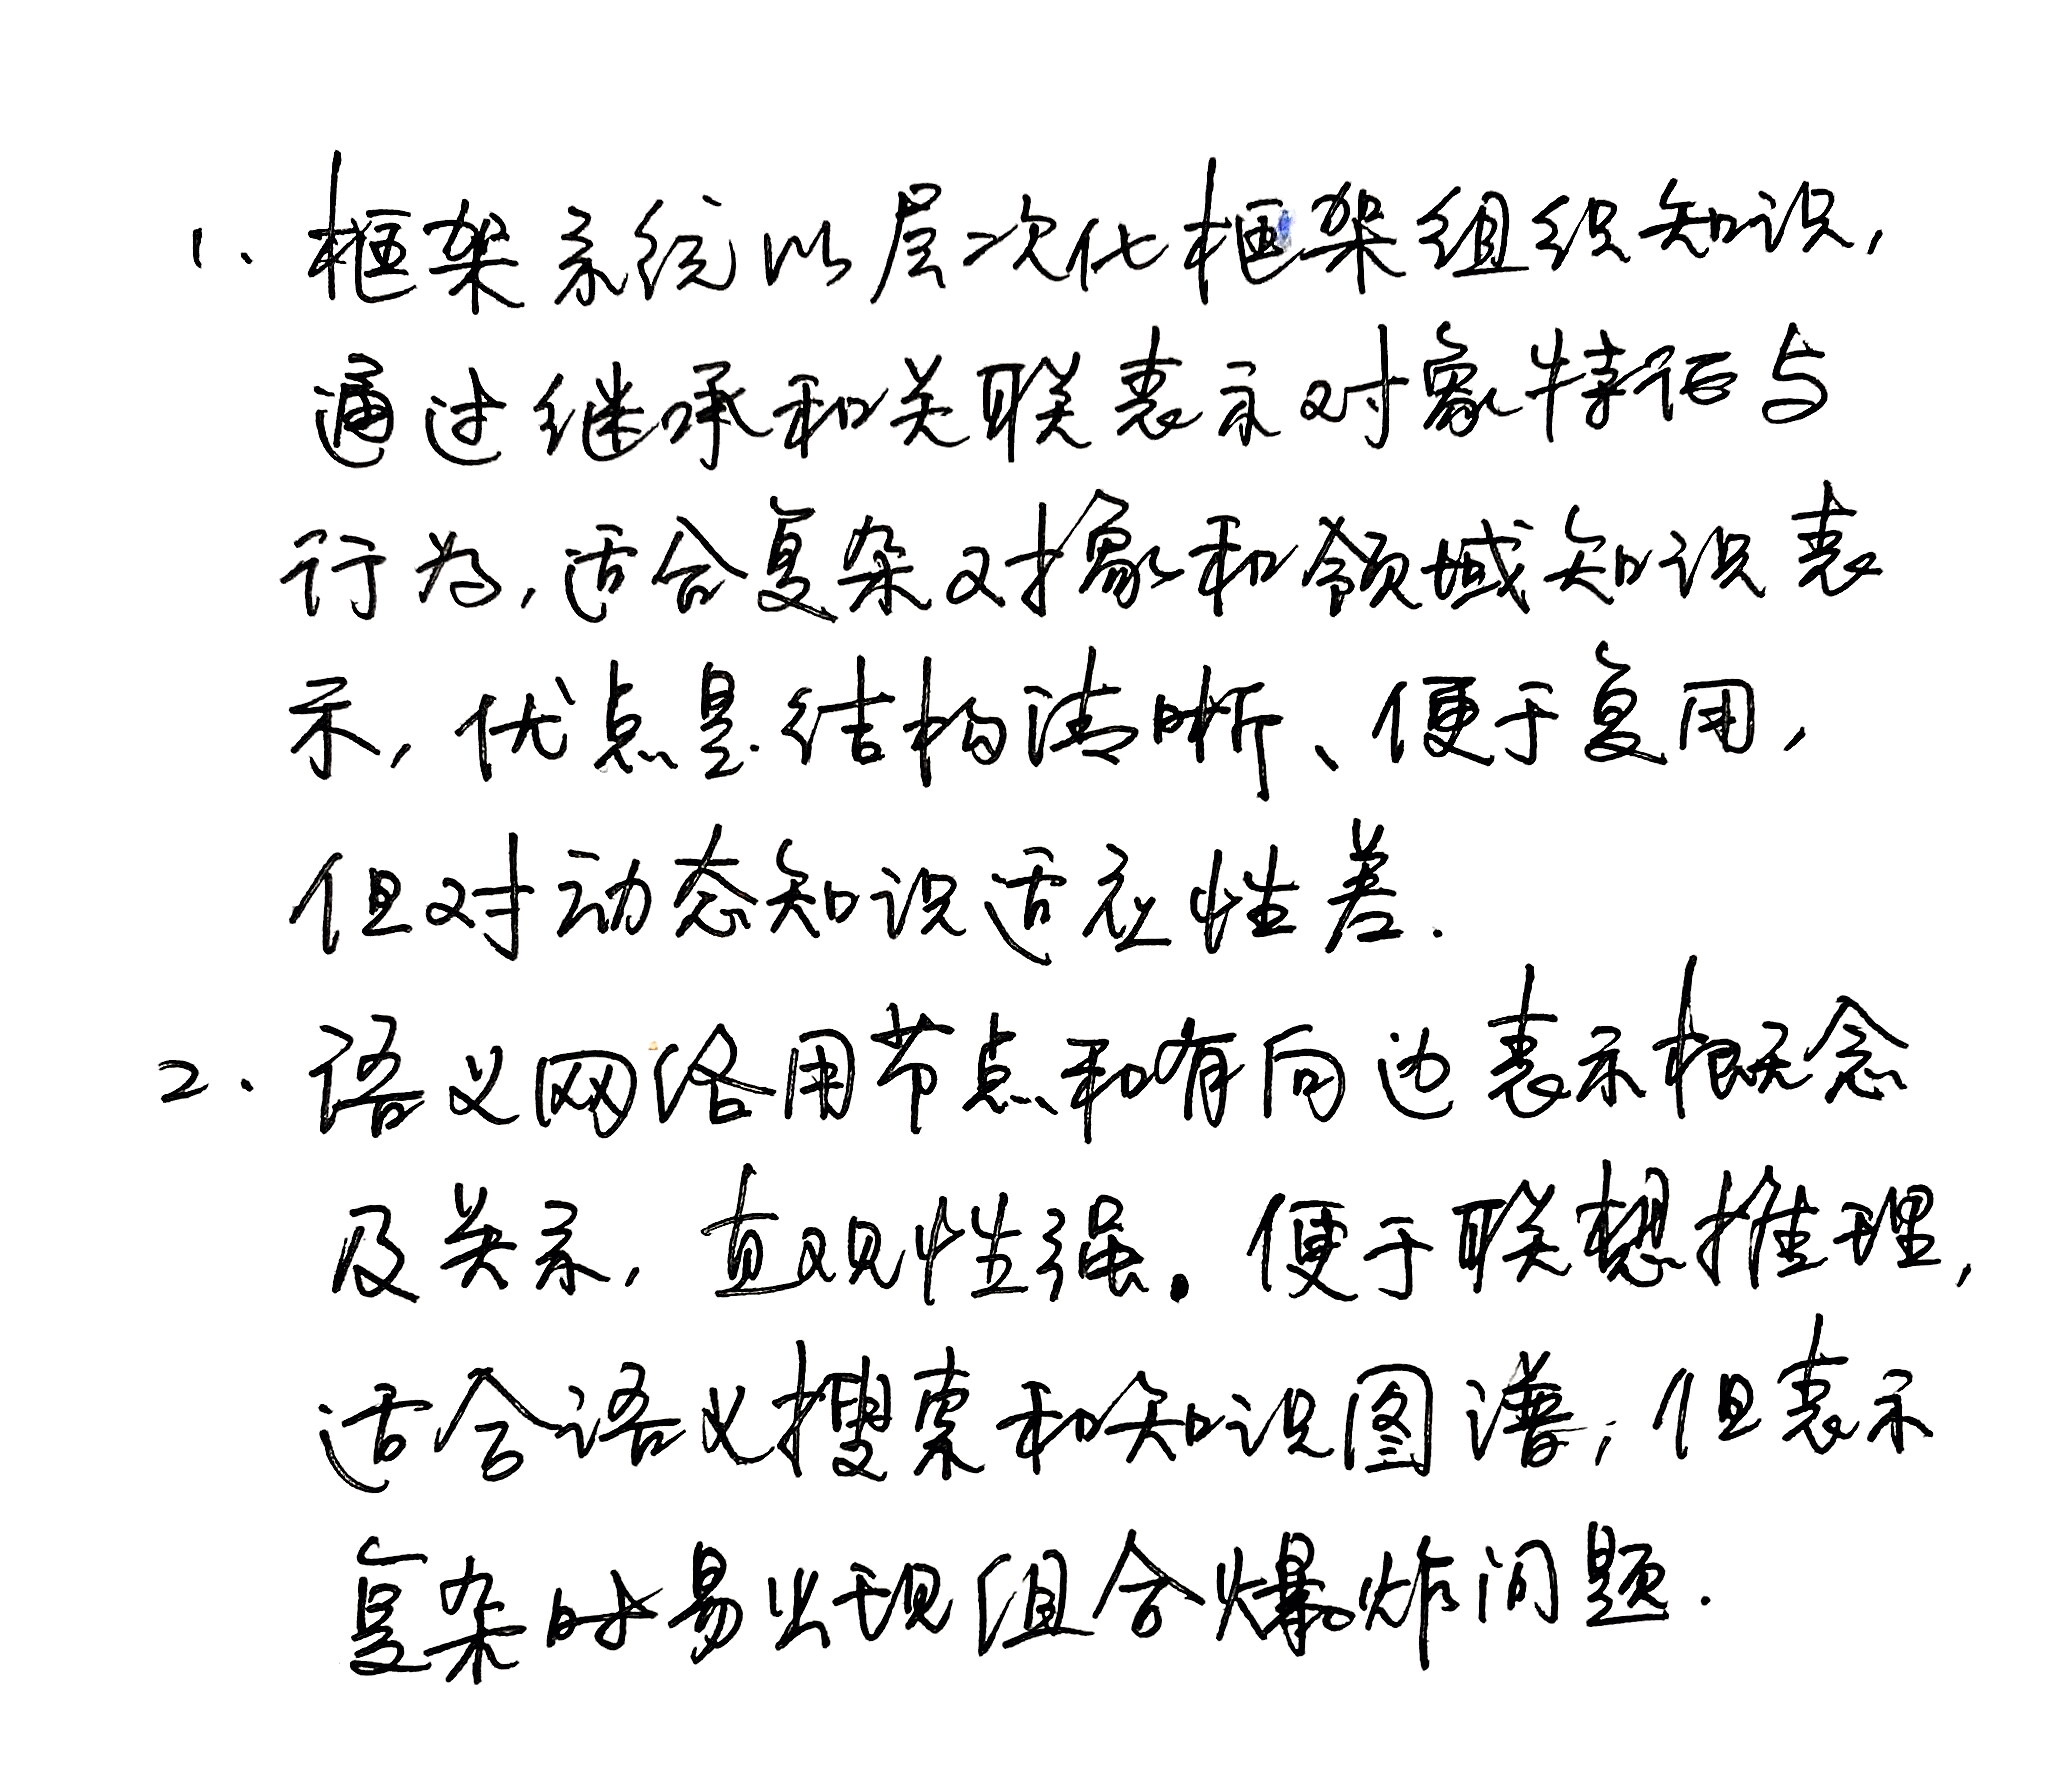 1. 框架系统以层次化框架组织知识,
通过继承和关联表示对象特征与
行为,适合复杂对象和领域知识表
示,优点是结构清晰、便于复用,
但对动态知识适应性差.
2. 语义网络用节点和有向边表示概念
及关系,直观性强.便于联想推理,
适合语义搜索和知识图谱;但表示
复杂时易出现组合爆炸问题.